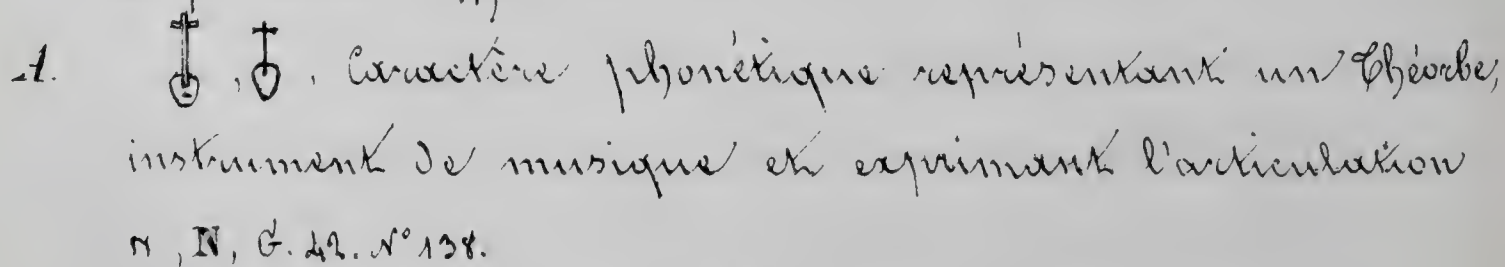 1. 𓄤, 𓄤. Caractère phonétique représentant un Théorbe,
instrument de musique et exprimant l'articulation
n, N, G. 42. N° 138.